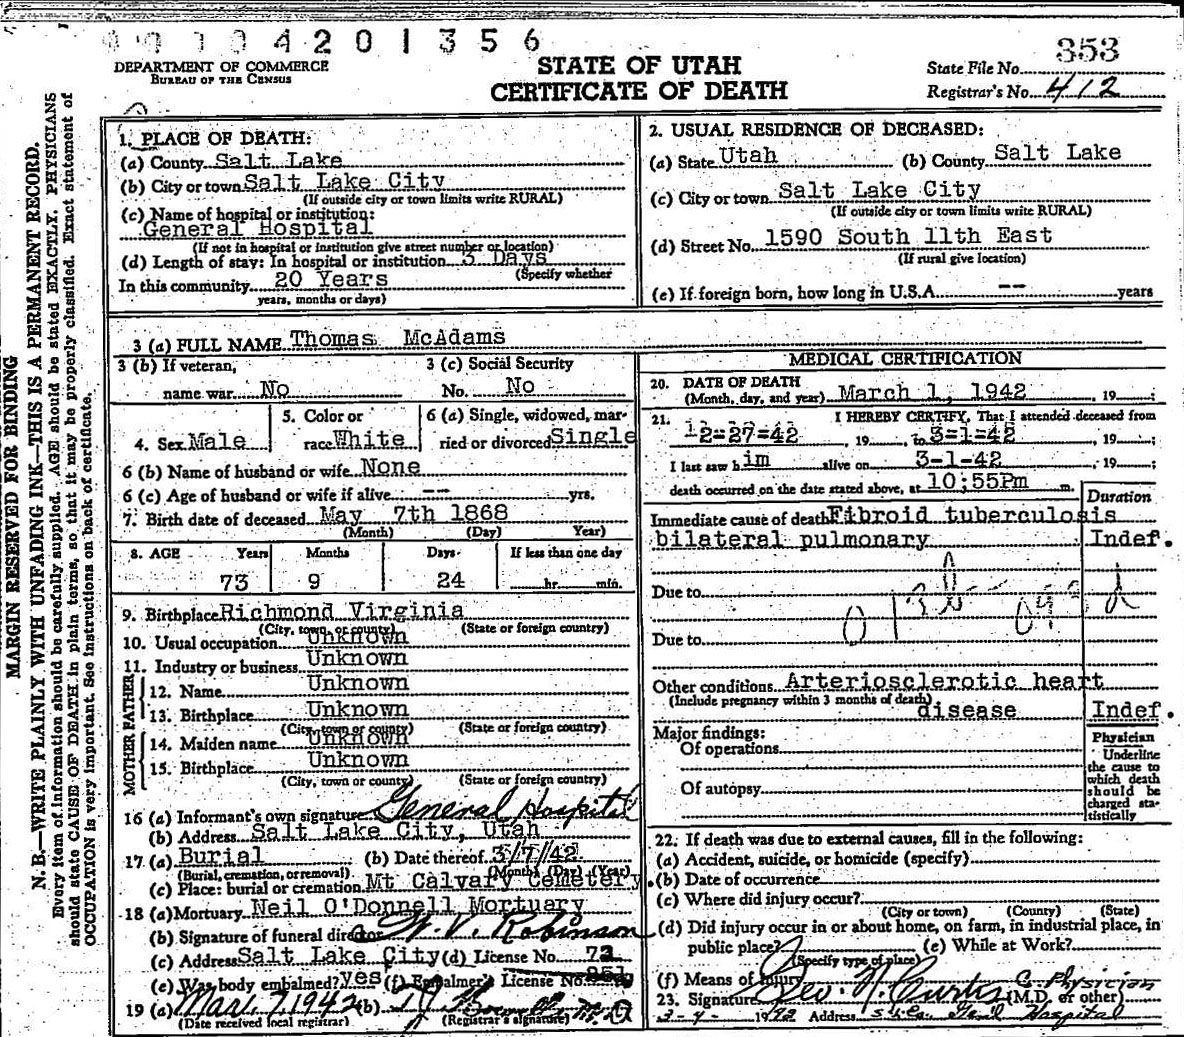 4 2 0 1 3 5 6
DEPARTMENT OF COMMERCE
BUREAU OF THE CENSUS
STATE OF UTAH
CERTIFICATE OF DEATH
353
State File No.
Registrar's No. 412
MARGIN RESERVED FOR BINDING
N. B.—WRITE PLAINLY WITH UNFADING INK—THIS IS A PERMANENT RECORD.
Every item of information should be carefully supplied. AGE should be stated EXACTLY. PHYSICIANS
should state CAUSE OF DEATH in plain terms, so that it may be properly classified. Exact statement of
OCCUPATION is very important. See instructions on back of certificate.
1. PLACE OF DEATH:
(a) County Salt Lake
(b) City or town Salt Lake City
(If outside city or town limits write RURAL)
(c) Name of hospital or institution:
General Hospital
(If not in hospital or institution give street number or location)
(d) Length of stay: In hospital or institution 3 Days
(Specify whether
In this community 20 Years
years, months or days)
2. USUAL RESIDENCE OF DECEASED:
(a) State Utah (b) County Salt Lake
(c) City or town Salt Lake City
(If outside city or town limits write RURAL)
(d) Street No. 1590 South 11th East
(If rural give location)
(e) If foreign born, how long in U.S.A. -- years
3 (a) FULL NAME Thomas McAdams
3 (b) If veteran, 3 (c) Social Security
name war No No. No
4. Sex Male
5. Color or
race White
6 (a) Single, widowed, mar-
ried or divorced Single
6 (b) Name of husband or wife None
6 (c) Age of husband or wife if alive -- yrs.
7. Birth date of deceased May 7th 1868
(Month) (Day) Year)
8. AGE Years Months Days If less than one day
73 9 24 hr. min.
9. Birthplace Richmond Virginia
(City, town, or county) (State or foreign country)
10. Usual occupation Unknown
11. Industry or business Unknown
FATHER
12. Name Unknown
13. Birthplace Unknown
(City, town or county) (State or foreign country)
MOTHER
14. Maiden name Unknown
15. Birthplace Unknown
(City, town or county) (State or foreign country)
16 (a) Informant's own signature General Hospital
(b) Address Salt Lake City, Utah
17. (a) Burial (b) Date thereof 3/7/42
(Burial, cremation, or removal) (Month) (Day) (Year)
(c) Place: burial or cremation Mt Calvary Cemetery.
18 (a) Mortuary Neil O'Donnell Mortuary
(b) Signature of funeral director W. V. Robinson
(c) Address Salt Lake City (d) License No. 73
(e) Was body embalmed? yes (f) Embalmer's License No.
19 (a) Mar. 7, 1942 (b)
(Date received local registrar) (Registrar's signature)
MEDICAL CERTIFICATION
20. DATE OF DEATH
(Month, day, and year) March 1, 1942, 19
21. I HEREBY CERTIFY, That I attended deceased from
12-27-42, 19 to 3-1-42, 19 ;
I last saw h im alive on 3-1-42, 19 ;
death occurred on the date stated above, at 10;55Pm m.
Duration
Immediate cause of death Fibroid tuberculosis
bilateral pulmonary Indef.
Due to
Due to
Other conditions Arteriosclerotic heart
(Include pregnancy within 3 months of death)
disease Indef.
Major findings:
Of operations
Of autopsy
Physician
Underline
the cause to
which death
should be
charged sta-
tistically
22. If death was due to external causes, fill in the following:
(a) Accident, suicide, or homicide (specify)
(b) Date of occurrence
(c) Where did injury occur?
(City or town) (County) (State)
(d) Did injury occur in or about home, on farm, in industrial place, in
public place? (e) While at Work?
(Specify type of place)
(f) Means of Injury
23. Signature Curtis Physician (M.D. or other)
1942 Address Hospital